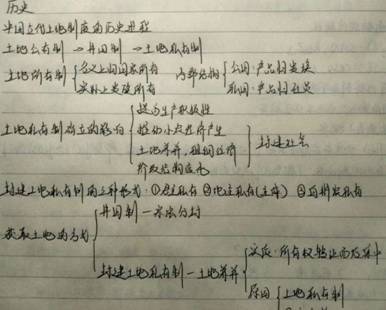 历史
中国古代土地制度的历史进程
土地公有制 → 井田制 → 土地私有制
土地所有制 名义上归国家所有 内部结构 公田:产品归贵族
实际上贵族所有 私田:产品归社员
土地私有制确立的影响 提高生产积极性
推动小农经济产生
土地兼并,租佃经济 封建社会
阶级结构变化
封建土地私有制的三种形式:①君主私有 ②地主私有(主体) ③自耕农私有
获取土地的方式 井田制 — 宗法分封
封建土地私有制 — 土地兼并 实质:所有权
原因 土地私有制